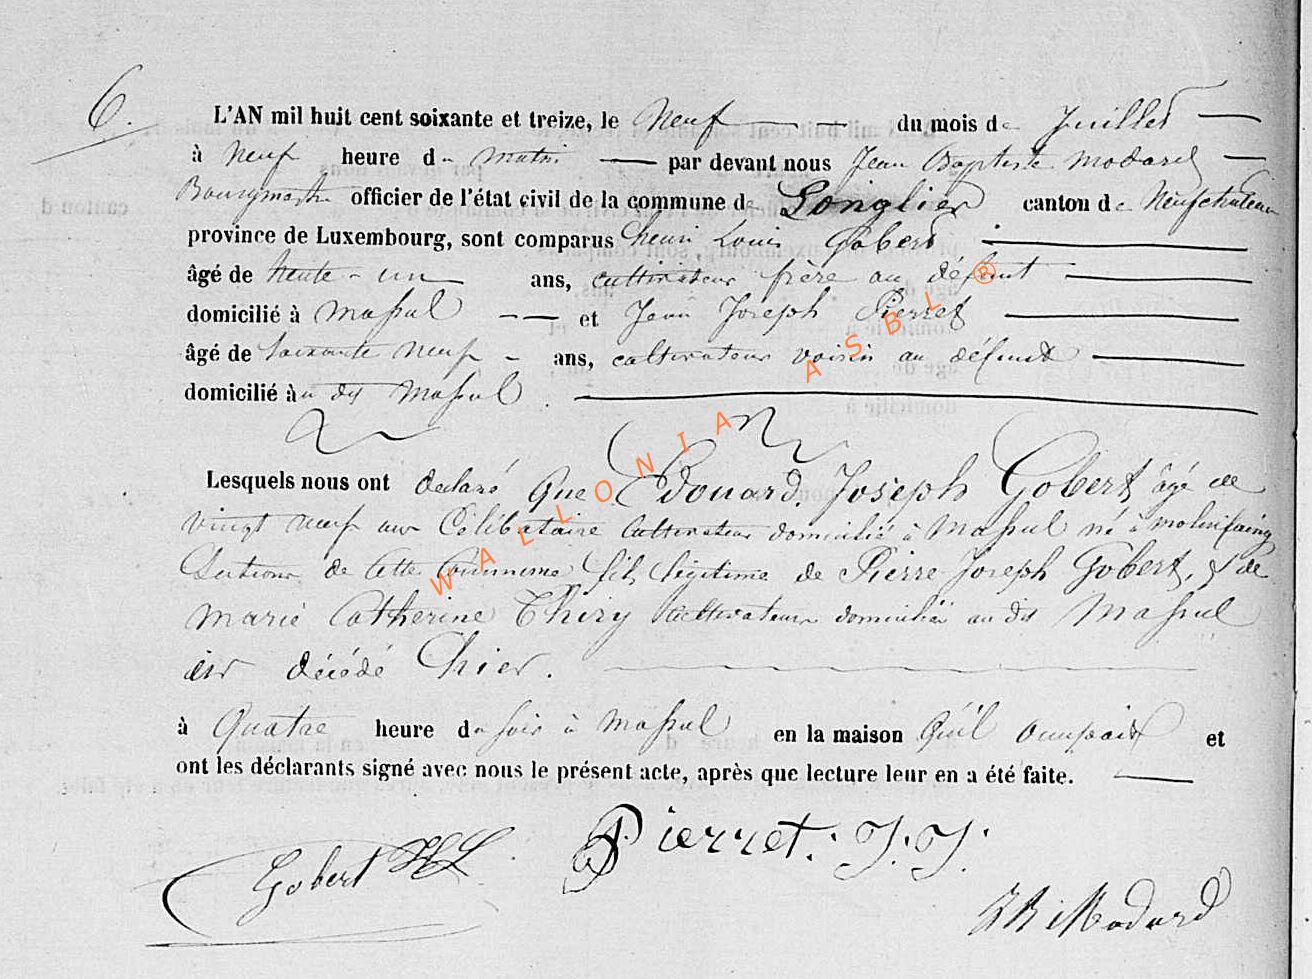 6.
L'AN mil huit cent soixante et treize, le Neuf du mois de Juillet
à Neuf heure du matin par devant nous Jean Baptiste Modard
Bourgmestre officier de l'état civil de la commune de Longlier canton de Neufchateau
province de Luxembourg, sont comparus henri Louis Gobert
âgé de trente-un ans, cultivateur frère au défunt
domicilié à Massul et Jean Joseph Pierret
âgé de Soixante neuf ans, cultivateur voisin au défunt
domicilié à u dit Massul.
Lesquels nous ont declaré que Edouard Joseph Gobert, âgé de
vingt neuf ans Célibataire Cultivateur domicilié à Massul né à molinfaing
Sections de Cette Commune, fils légitime de Pierre Joseph Gobert, & de
marie Catherine Thiry Cultivateurs domiciliés au dit Massul
est décédé hier.
à Quatre heure du soir à Massul en la maison qu'il occupait et
ont les déclarants signé avec nous le présent acte, après que lecture leur en a été faite.
Gobert HL
Pierret. J. J.
JB Modard
WALLONIA ASBL ®